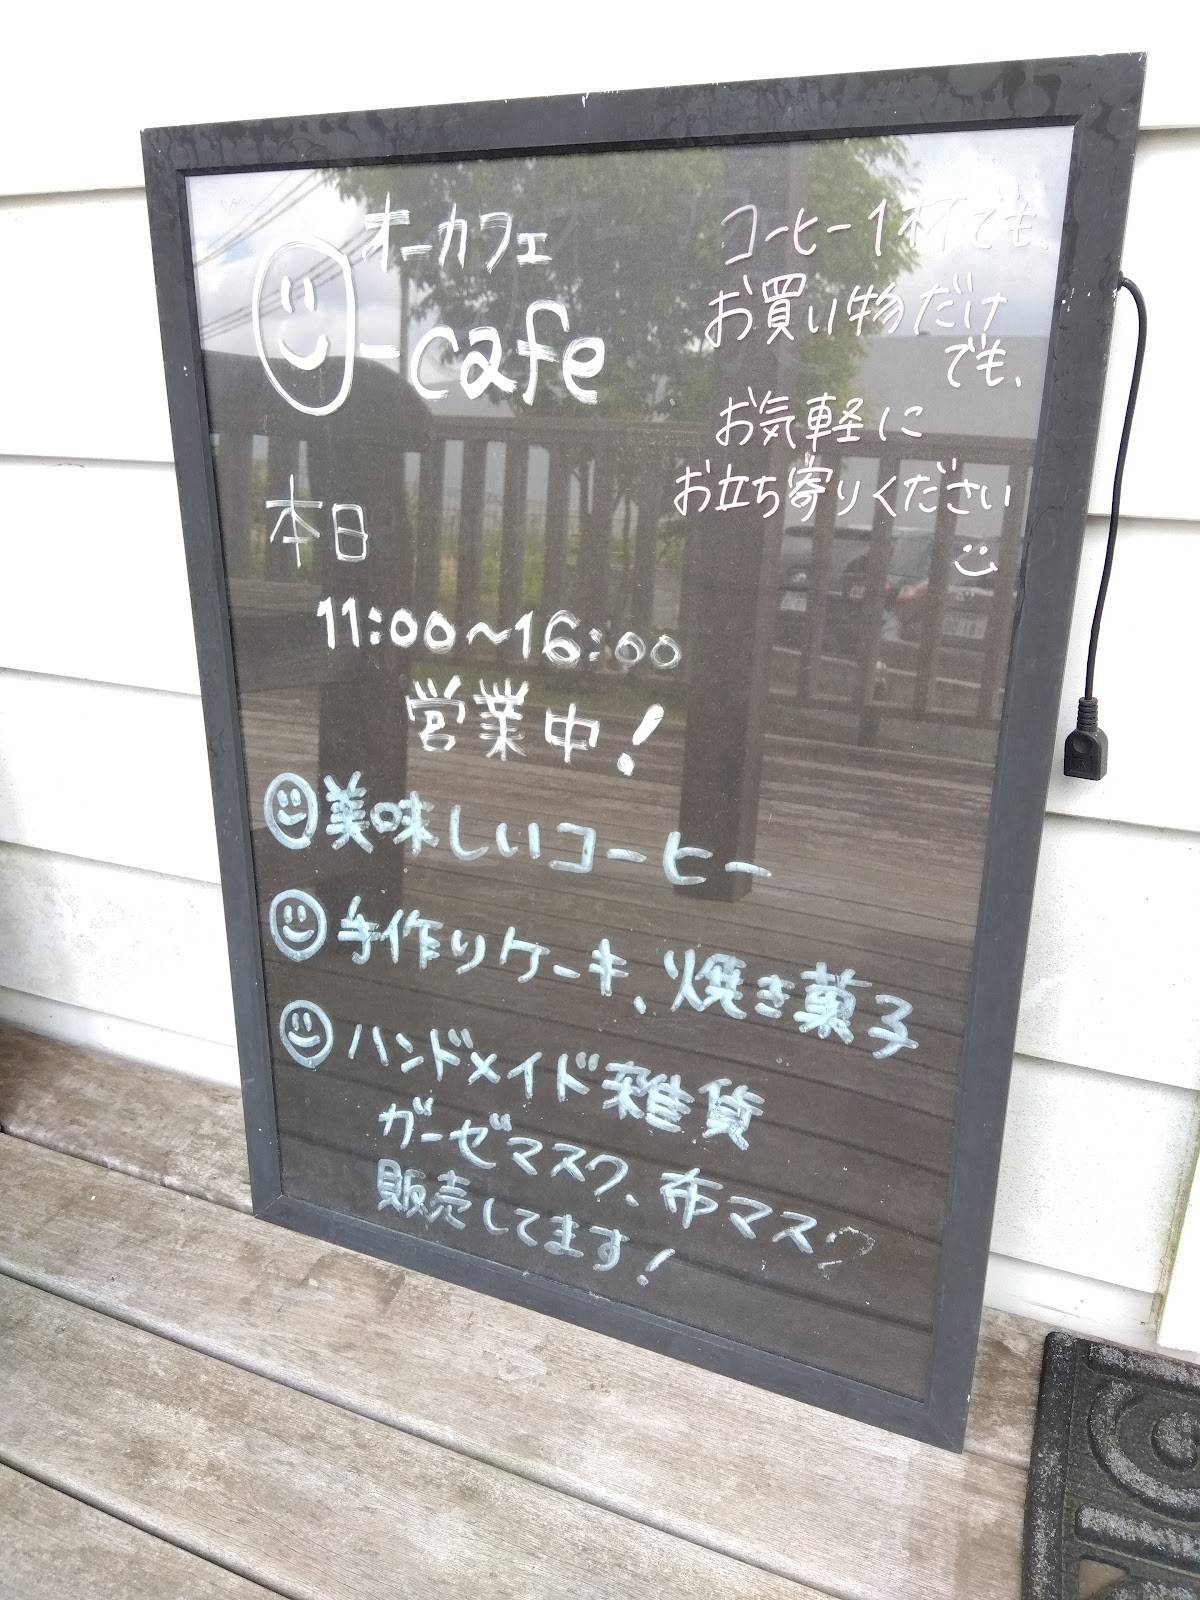 オーカフェ
O-cafe
コーヒー1杯でも、
お買い物だけ
でも、
お気軽に
お立ち寄りください
本日
11:00~16:00
営業中!
美味しいコーヒー
手作りケーキ、焼き菓子
ハンドメイド雑貨
ガーゼマスク、布マスク
販売してます!